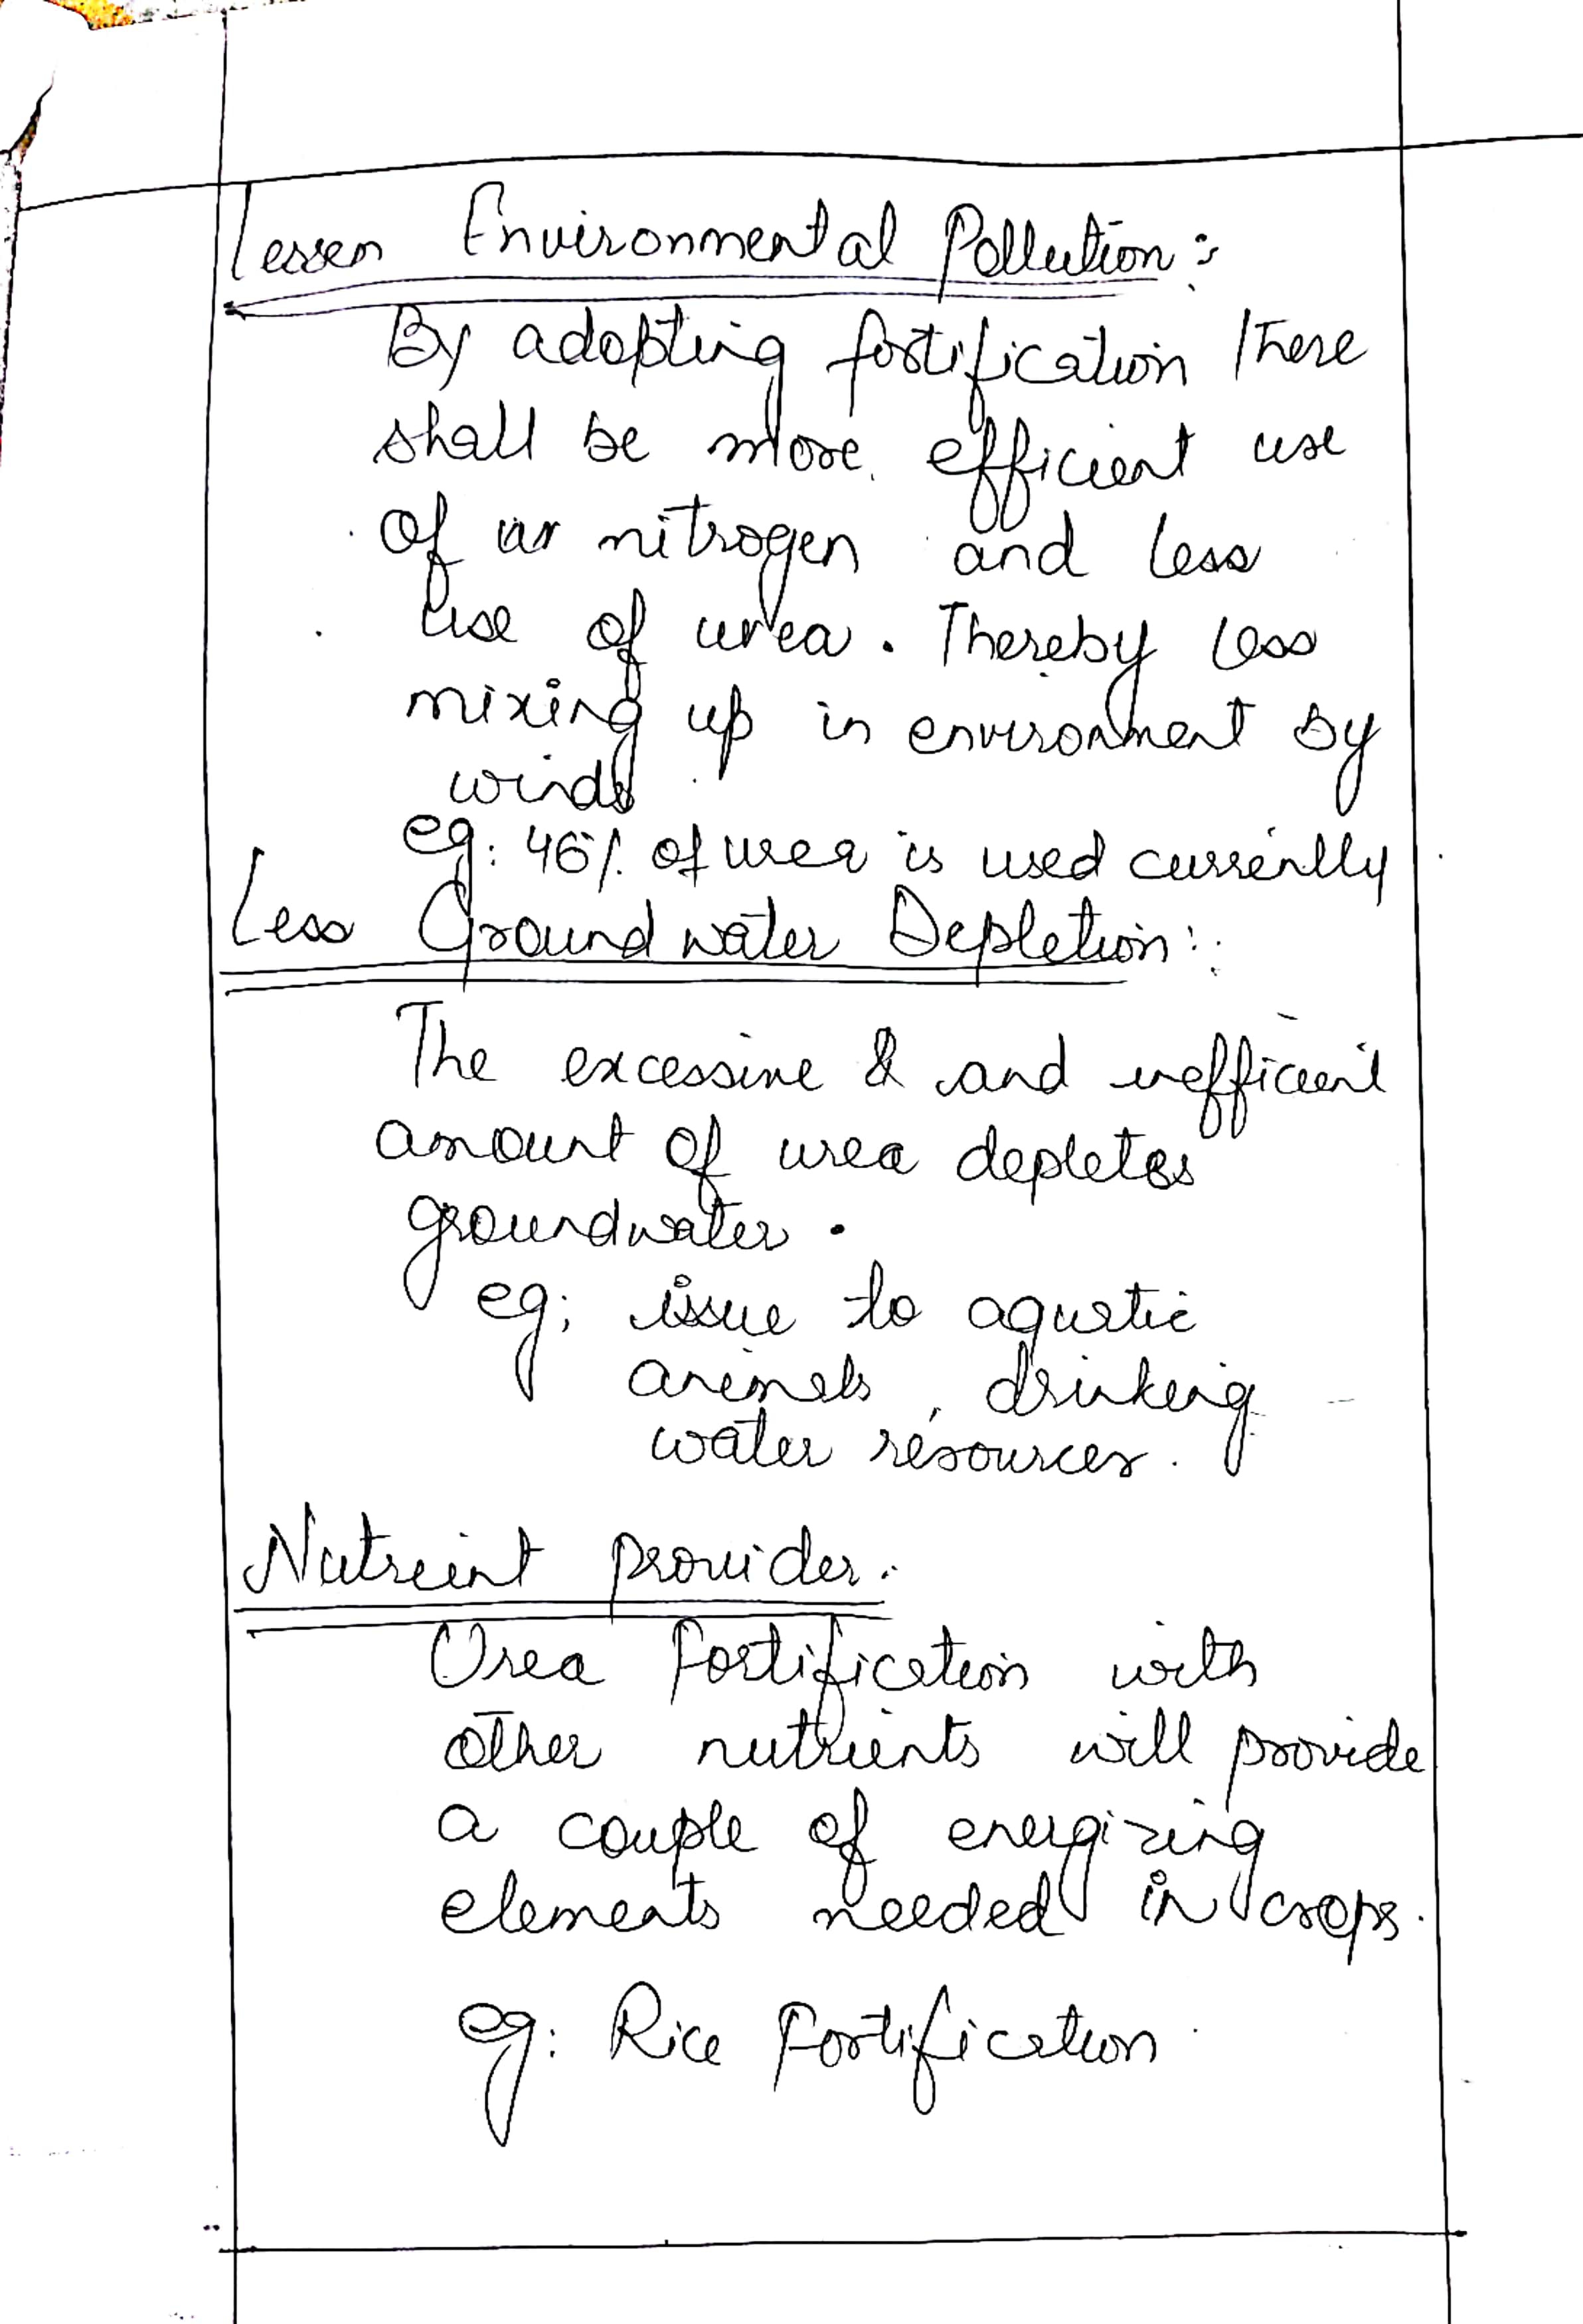 Lessen Environmental Pollution:
By adopting fortification there
shall be more efficient use
of ur nitrogen and less
use of urea. Thereby less
mixing up in environment by
winds
eg: 46% of urea is used currently
Less Groundwater Depletion:
The excessive & and inefficient
amount of urea depletes
groundwater.
eg; issue to aquatic
animals, drinking
water resources.
Nutrient provider.
Urea fortification with
other nutrients will provide
a couple of energizing
elements needed in crops.
eg: Rice Fortification